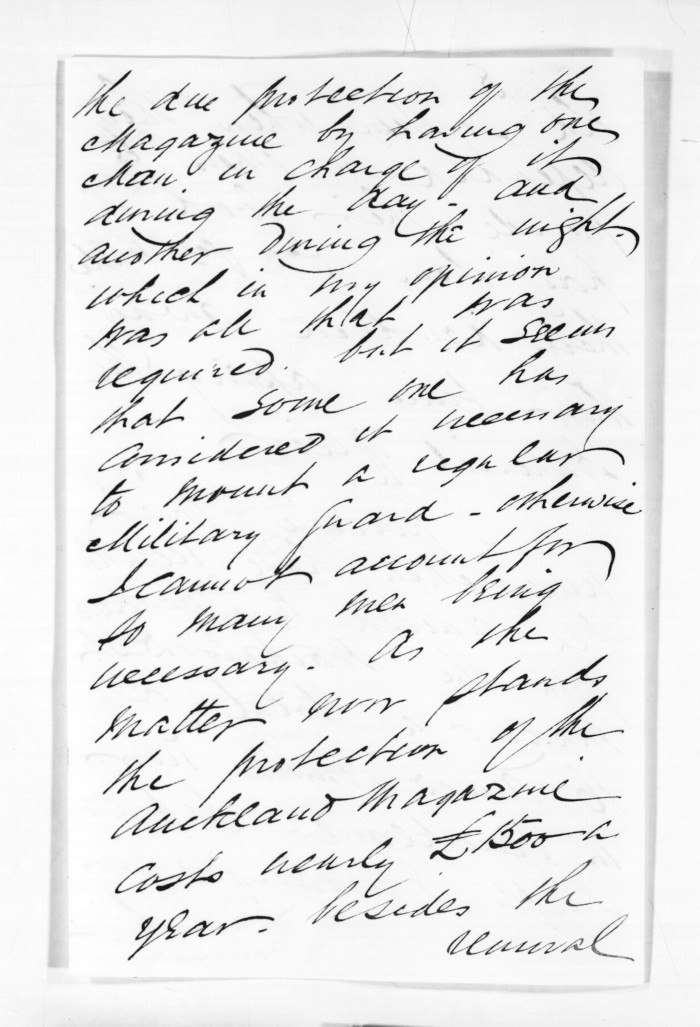 the due protection of the
Magazine by having one
Man in charge of it
during the day - and
another during the night -
which in my opinion
was all that was
required. but it seems
that some one has
considered it necessary
to mount a regular
Military Guard - otherwise
I cannot account for
so many men being
necessary. As the
matter now stands
the protection of the
Auckland Magazine
costs nearly £1500 a
year. besides the
removal